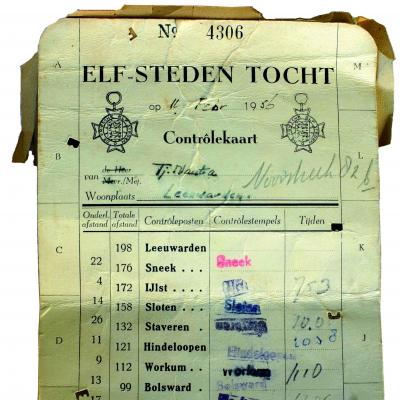 Nº 4306
A M
ELF-STEDEN TOCHT
op 11 Febr 1956
Contrôlekaart
B L
de Heer
van
Mevr./Mej.
Woonplaats Leeuwarden
Onderl. afstand Totale afstand Contrôleposten Contrôlestempels Tijden
C K
198 Leeuwarden
22
176 Sneek . . . Sneek
4
172 IJlst . . 753
14
158 Sloten . . Sloten
26
132 Staveren . 10.0
11
D J
121 Hindeloopen Hindeloopen
9
112 Workum . Workum 110
13
99 Bolsward . Bolsward
17